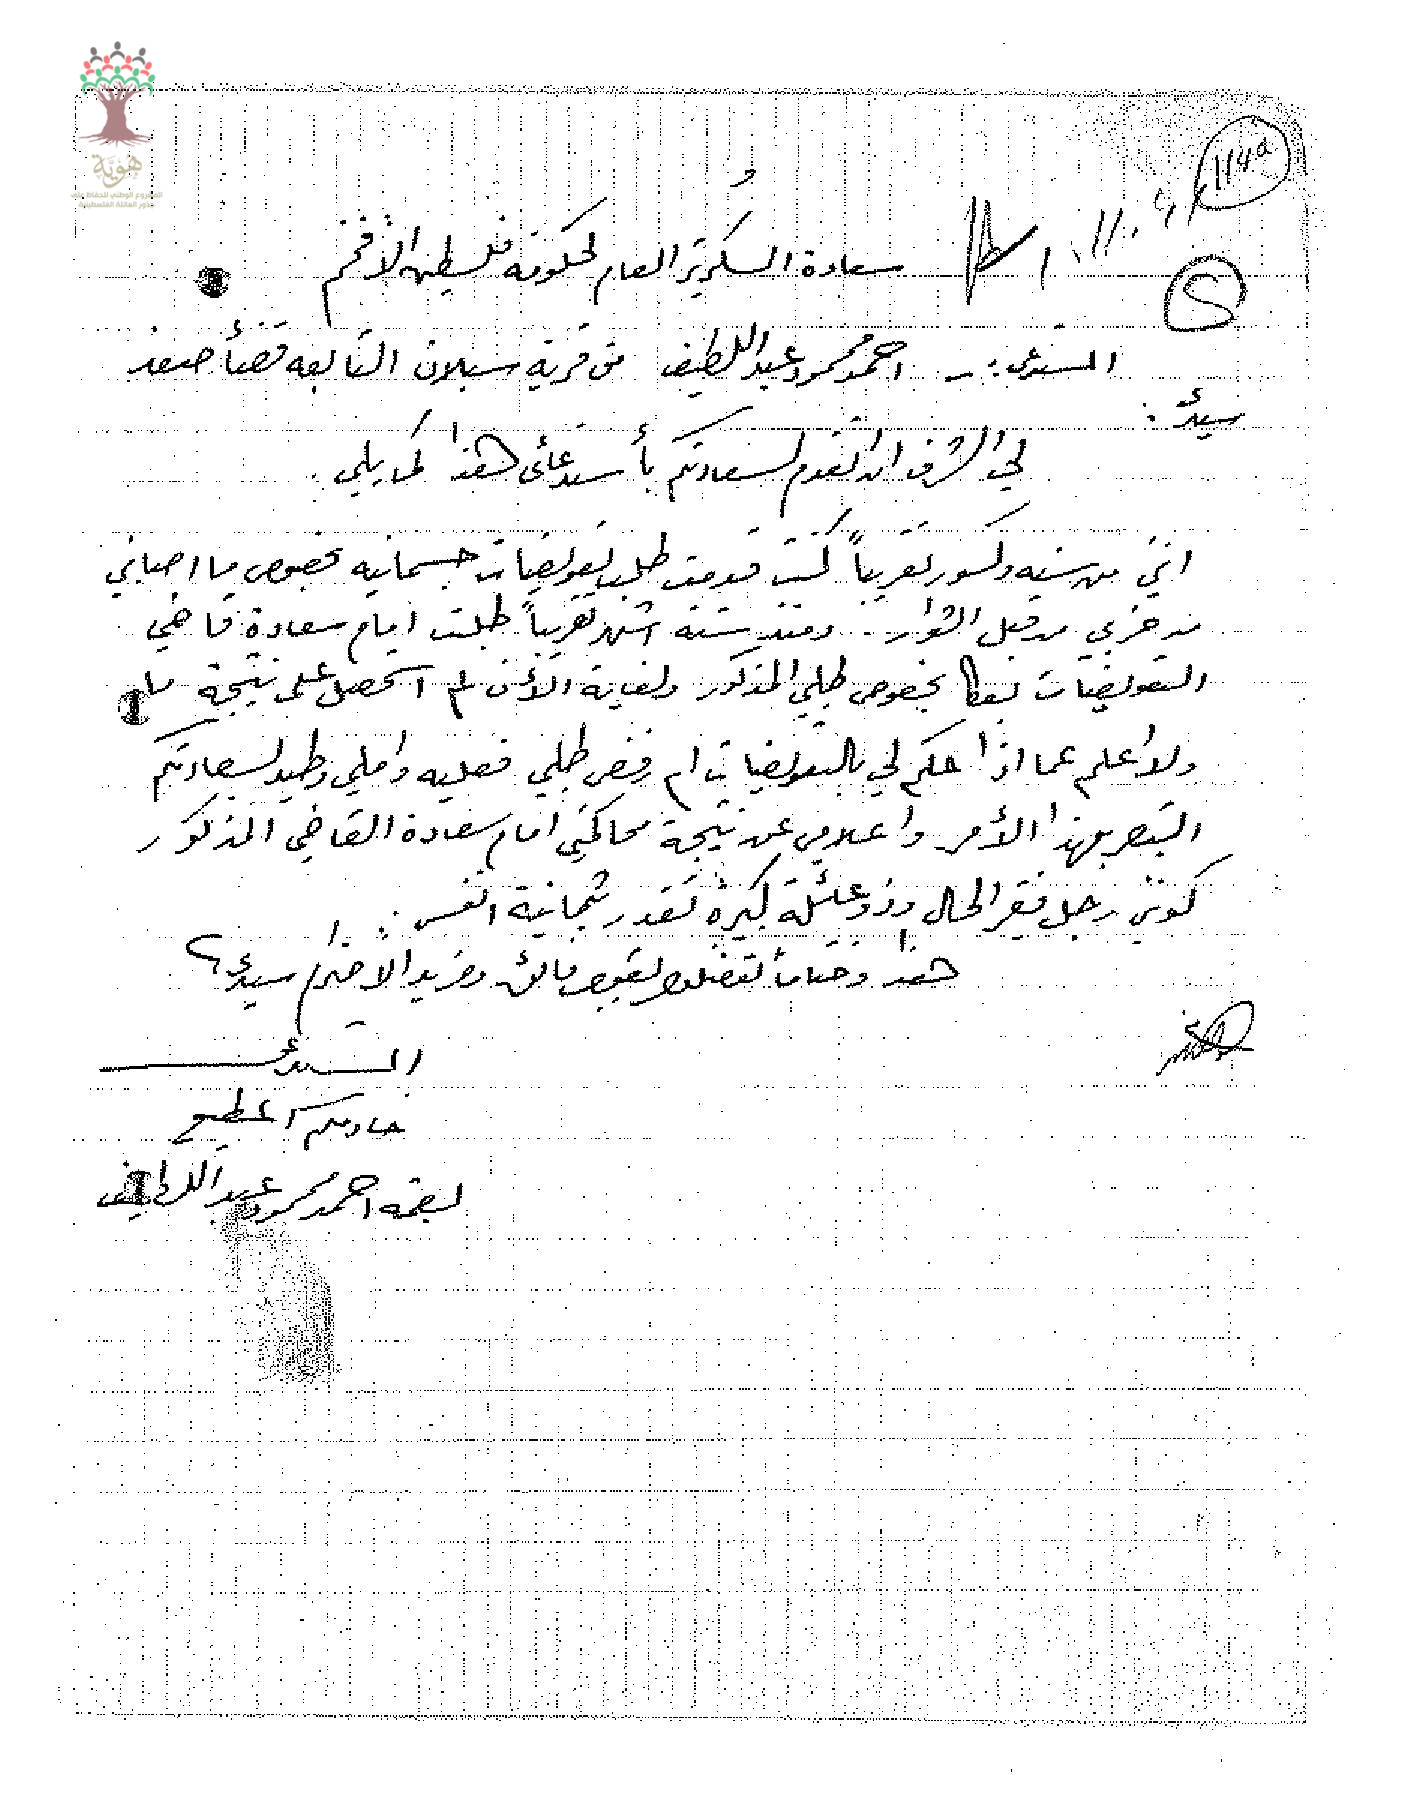 هوية
المشروع الوطني للحفاظ على
جذور العائلة الفلسطينية
114a
سعادة السكرتير العام لحكومة فلسطين الأفخم
المستدعي :- احمد محمود عبد اللطيف من قرية سبلان التابعه قضأ صفد
سيدي :
لي الشرف ان اتقدم لسعادتكم بأستدعائي هذا كما يلي .
انني من سنه وكسور تقريباً كنت قدمت طلب تعويضات جسمانيه بخصوص ما اصابني
من ضرب من قبل الثوار . ومنذ ستة اشهر تقريباً طلبت امام سعادة قاضي
التعويضات بعكا بخصوص طلبي المذكور ولغاية الأن لم استحصل على نتيجة ما
ولا اعلم عما اذا حكم لي بالتعويضات ام رفض طلبي فعليه واملي وطيد لسعادتكم
التبصر بهذا الأمر واعلامي عن نتيجة محاكمتي امام سعادة القاضي المذكور
كوني رجل فقير الحال وذو عائلة كبيرة تقدر بثمانية انفس .
هذا وختاماً تفضلوا بقبول فائق ومزيد الاحترام سيدي
المستدعي
خادمكم المطيع
بصمة احمد محمود عبد اللطيف